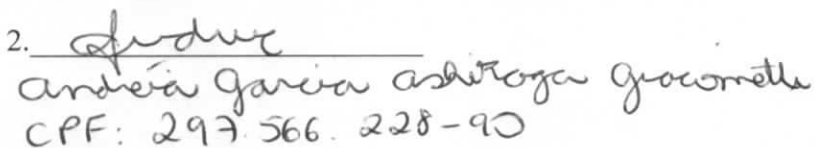 2.
Andréia Garcia Ashiroga Giacometti
CPF: 297.566.228-90